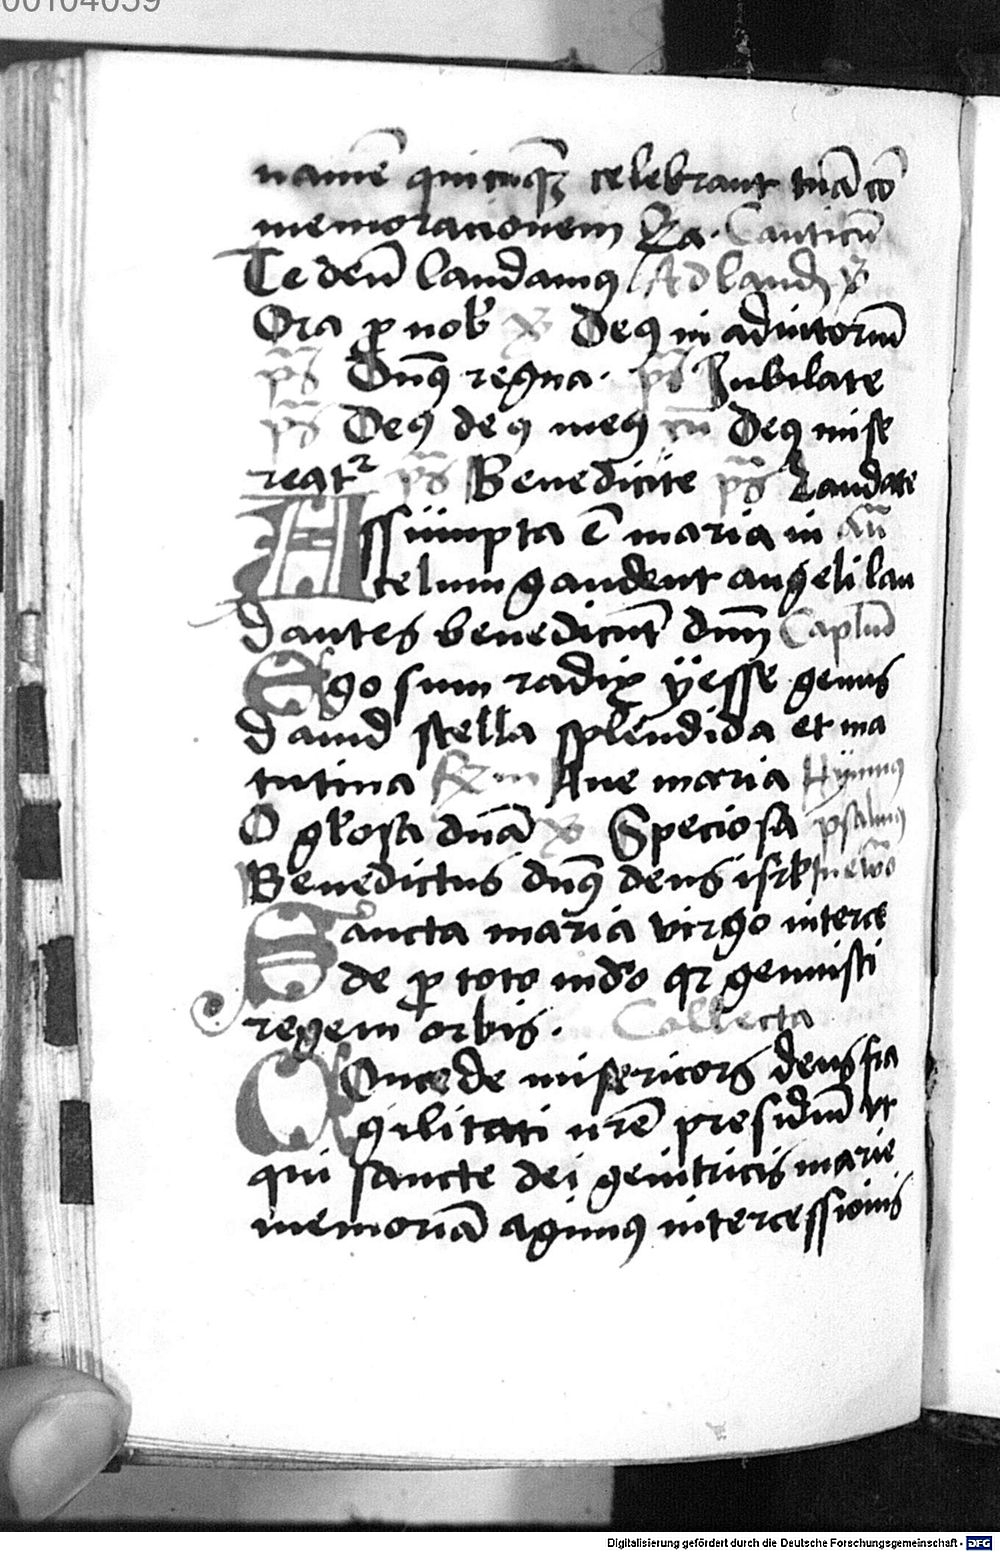 00104059
namē quicūqꝫ celebrant tuā cō
memorationem Canticū
Te deū laudamus Ad laud
Ora ꝓ nob Deus in adiutoriū
ps Dn̄s regna. ps Jubilate
ps Deus deus meus cū Deus mise
reatr ps Benedicite ps Laudate
Assumpta ē maria in Añ
celum gaudent angeli lau
dantes benedicūt dnm̄ Caplm̄
Ego sum radix yesse genus
dauid stella splendida et ma
tutina Ave maria Hymnus
O gl'osa dn̄a Speciosa psalmus
Benedictus dn̄s deus isrl
Sancta maria virgo interce
de ꝓ toto mdo qr genuisti
regem orbis. Collecta
Concede misericors deus fra
gilitati nr̄e presidiū vt
qui sancte dei genitricis marie
memoriā agimus intercessionis
Digitalisierung gefördert durch die Deutsche Forschungsgemeinschaft - DFG